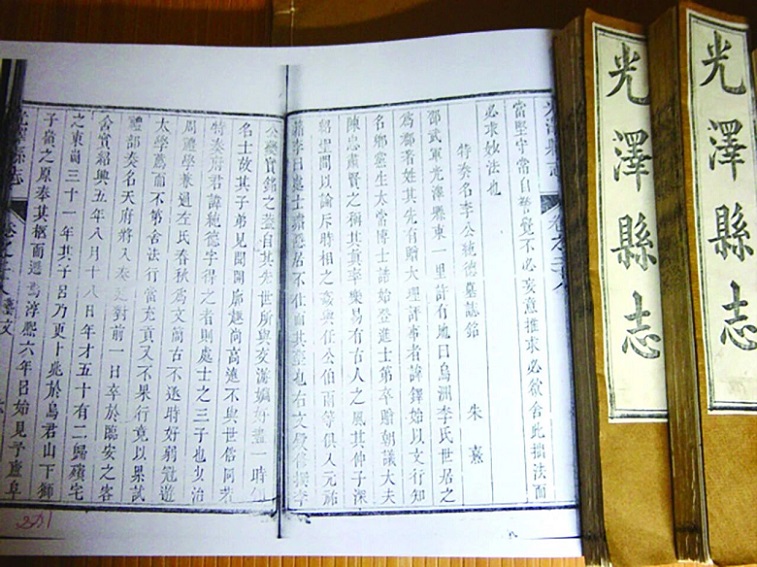 光澤縣志
光澤縣志
當堅守常自警覺不必妄意推求必欲舍此拙法而
必求妙法也
特奏名李公純德墓誌銘 朱熹
邵武軍光澤縣東一里許有地曰烏洲李氏世居之
為鄰著姓其先有贈大理評事者諱鐸始以文行知
名鄉黨生太常博士誥始登進士第卒贈朝議大夫
陳忠肅賢之稱其真率樂易有古人之風其仲子深
紹聖間以論斥時相之姦與任公伯雨等俱入元祐
籍季曰處士隱居不仕而其也右文殿修撰李
公夔實銘之蓋自其先世所與交游姻好盡一時知
名士故其子弟見聞開廓趣尚高遠不與世俗同若
特奏府君諱純德字得之者則處士之三子也少治
周禮學兼通左氏春秋為文簡古不逐時好弱冠遊
太學薦而不第舍法行當充貢又不果行竟以累試
禮部奏名天府將入奏廷對前一日卒於臨安之客
舍實紹興五年八月十八日年才五十有二歸殯宅
之東岡三十一年其子呂乃更卜兆於烏君山下獅
子嶺之原奉其柩而遷焉淳熙六年呂始見予廬阜
光澤縣志 藝文